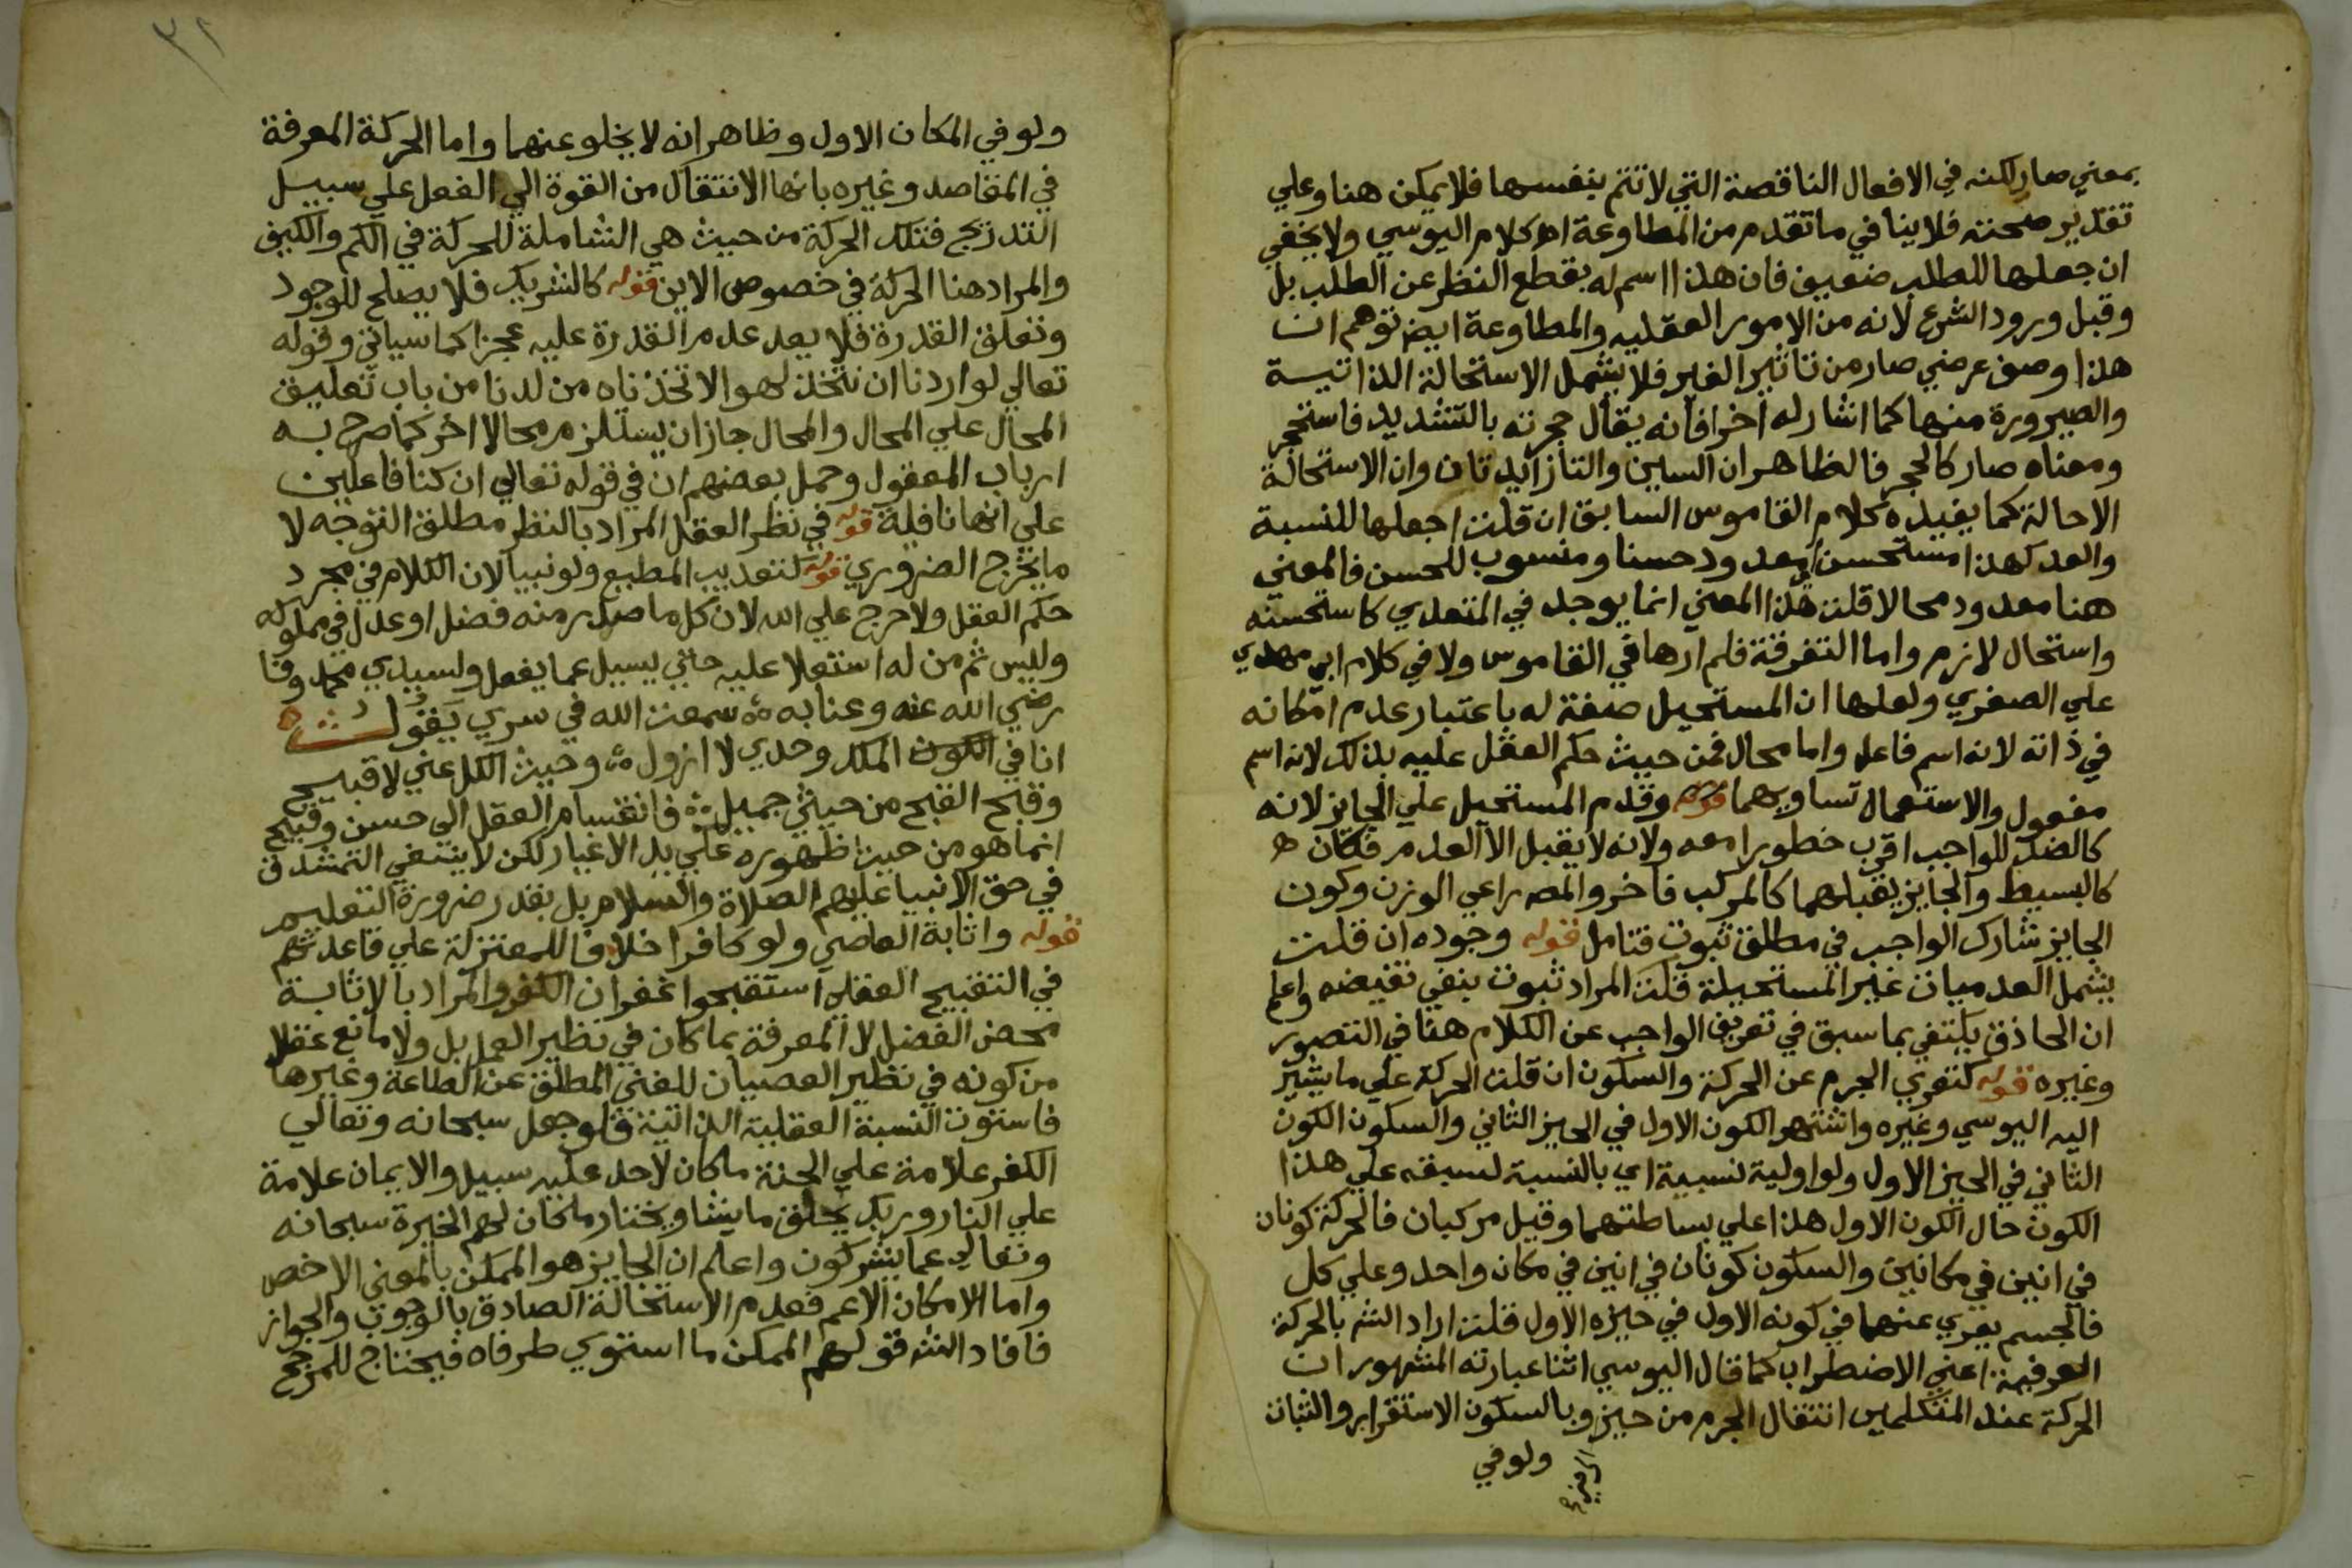 بمعني صار لكنه في الافعال الناقصة التي لا تتم بنفسها فلا يمكن هنا وعلي
تقدير صحته فلا ينافي ما تقدم من المطاوعة اه كلام اليوسي ولا يخفي
ان جعلها للطلب ضعيف فان هذا اسم له بقطع النظر عن الطلب بل
وقبل ورود الشرع لانه من الامور العقليه والمطاوعة ايض توهم ان
هذا وصف عرضي صار من تاثير الغير فلا يشمل الاستحالة الذاتية
والصيرورة منها كما اشار له اخرا فانه يقال حجرته بالتشديد فاستحجر
ومعناه صار كالحجر فالظاهر ان السين والتا زايدتان وان الاستحالة
الاحالة كما يفيده كلام القاموس السابق ان قلت اجعلها للنسبة
والعد كهذا مستحسن اي معدود حسنا ومنسوب للحسن فالمعني
هنا معدود محالا قلت هذا المعني انما يوجد في المتعدي كاستحسنه
واستحال لازم واما التفرقة فلم ارها في القاموس ولا في كلام ابي مهدي
علي الصغري ولعلها ان المستحيل صفة له باعتبار عدم امكانه
في ذاته لانه اسم فاعل واما محال فمن حيث حكم العقل عليه بذلك لانه اسم
مفعول والاستعمال تساويهما قوله وقدم المستحيل علي الجايز لانه
كالضد للواجب اقرب خطورا معه ولانه لا يقبل الا العدم فكان ه
كالبسيط والجايز يقبلهما كالمركب فاخر والمصه راعي الوزن وكون
الجايز شارك الواجب في مطلق ثبوت فتامل قوله وجوده ان قلت
يشمل العدميات غير المستحيلة قلت المراد ثبوت ينفي نقيضه واعلم
ان الحاذق يكتفي بما سبق في تعريف الواجب عن الكلام هنا في التصور
وغيره قوله كتعري الجرم عن الحركة والسكون ان قلت الحركة علي ما يشير
اليه اليوسي وغيره واشتهر الكون الاول في الحيز الثاني والسكون الكون
الثاني في الحيز الاول ولو اولية نسبية اي بالنسبة لسبقه علي هذا
الكون حال الكون الاول هذا علي بساطتهما وقيل مركبان فالحركة كونان
في انين في مكانين والسكون كونان في انين في مكان واحد وعلي كل
فالجسم يعري عنهما في كونه الاول في حيزه الاول قلت اراد الشه بالحركة
العرفية اعني الاضطراب كما قال اليوسي اثنا عبارته المشهور ان
الحركة عند المتكلمين انتقال الجرم من حيز وبالسكون الاستقرار والثبات
ولو في
ولو في المكان الاول وظاهر انه لا يخلو عنهما واما الحركة المعرفة
في المقاصد وغيره بانها الانتقال من القوة الي الفعل علي سبيل
التدريج فتلك الحركة من حيث هي الشاملة للحركة في الكم والكيف
والمراد هنا الحركة في خصوص الاين قوله كالشريك فلا يصلح للوجود
وتعلق القدرة فلا يعد عدم القدرة عليه عجزا كما سياتي وقوله
تعالي لو اردنا ان نتخذ لهوا لاتخذناه من لدنا من باب تعليق
المحال علي المحال والمحال جاز ان يستلزم محالا اخر كما صرح به
ارباب المعقول وحمل بعضهم ان في قوله تعالي ان كنا فاعلين
علي انها نافية قوله في نظر العقل المراد بالنظر مطلق التوجه لا
ما يخرج الضروري قوله كتعذيب المطيع ولو نبيا لان الكلام في مجرد
حكم العقل ولا حرج علي الله لان كل ما صدر منه فضل او عدل في مملوكه
وليس ثم من له استعلا عليه حتي يسيل عما يفعل ولسيدي محمد وفا
رضي الله عنه وعنا به سمعت الله في سري يقول
انا في الكون الملك وحدي لا ازول وحيث الكل عني لا قبيح
وقبح القبح من حيثي جميل فانقسام العقل الي حسن وقبيح
انما هو من حيث ظهوره علي يد الاغيار لكن لا ينبغي التمشدق
في حق الانبيا عليهم الصلاة والسلام بل بقدر ضرورة التعليم
قوله واثابة العاصي ولو كافرا خلافا للمعتزلة علي قاعدتهم
في التقبيح العقلي استقبحوا غفران الكفر والمراد بالاثابة
محض الفضل لا المعرفة بما كان في نظير العمل بل ولا مانع عقلا
من كونه في نظير العصيان للغني المطلق عن الطاعة وغيرها
فاستوت النسبة العقلية الذاتية فلو جعل سبحانه وتعالي
الكفر علامة علي الجنة ما كان لاحد عليه سبيل والايمان علامة
علي النار وربك يخلق ما يشا ويختار ما كان لهم الخيرة سبحانه
وتعالي عما يشركون واعلم ان الجايز هو الممكن بالمعني الاخص
واما الامكان الاعم فعدم الاستحالة الصادق بالوجوب والجواز
فافاد الشه قولهم الممكن ما استوي طرفاه فيحتاج للمرجح